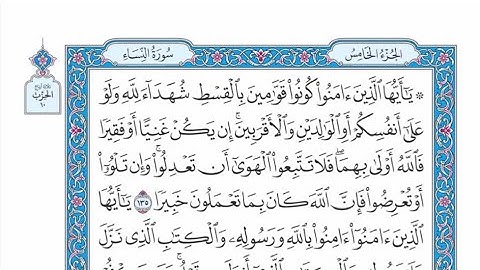 الجزء الخامس
سورة النساء
۞ يَٰٓأَيُّهَا ٱلَّذِينَ ءَامَنُوا۟ كُونُوا۟ قَوَّٰمِينَ بِٱلْقِسْطِ شُهَدَآءَ لِلَّهِ وَلَوْ
عَلَىٰٓ أَنفُسِكُمْ أَوِ ٱلْوَٰلِدَيْنِ وَٱلْأَقْرَبِينَ ۚ إِن يَكُنْ غَنِيًّا أَوْ فَقِيرًا
فَٱللَّهُ أَوْلَىٰ بِهِمَا ۖ فَلَا تَتَّبِعُوا۟ ٱلْهَوَىٰٓ أَن تَعْدِلُوا۟ ۚ وَإِن تَلْوُۥٓا۟
أَوْ تُعْرِضُوا۟ فَإِنَّ ٱللَّهَ كَانَ بِمَا تَعْمَلُونَ خَبِيرًا ١٣٥ يَٰٓأَيُّهَا
ٱلَّذِينَ ءَامَنُوٓا۟ ءَامِنُوا۟ بِٱللَّهِ وَرَسُولِهِۦ وَٱلْكِتَٰبِ ٱلَّذِى نَزَّلَ